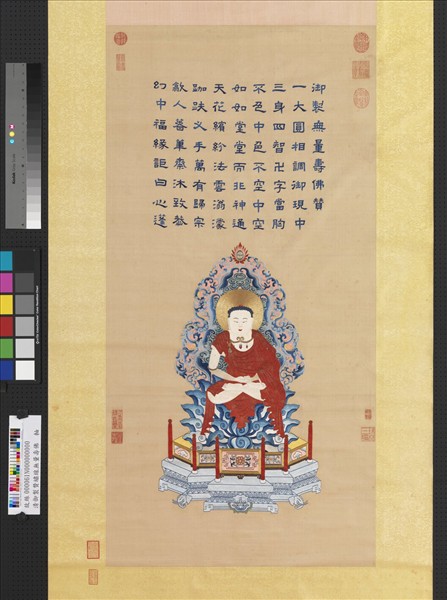 御製無量壽佛贊
一大圓相調御現中
三身四智卍字當胸
不色中色不空中空
如如堂堂而非神通
天花繽紛法雲滃濛
跏趺乂手萬有歸宗
人善沐致
幻中福緣詎曰心蓬
故絲 000061N000000000
無量壽佛 軸